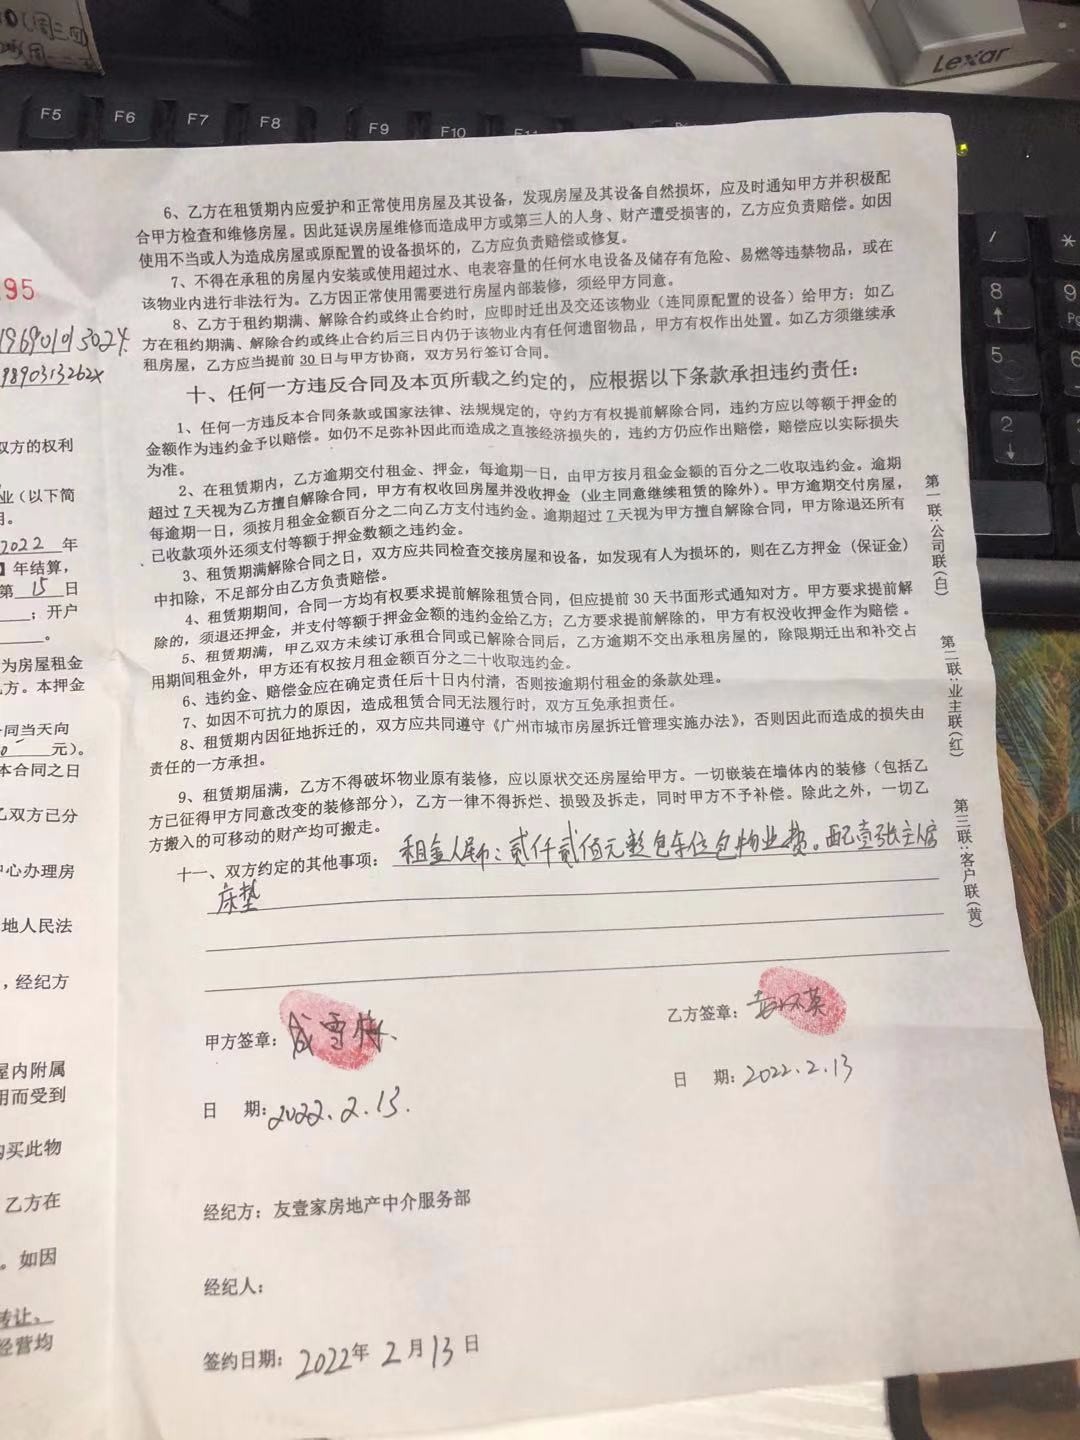 Lexar
F5
F6
F7
F8
F9
F10
F11
/
*
8
9
5
2
6、乙方在租赁期内应爱护和正常使用房屋及其设备，发现房屋及其设备自然损坏，应及时通知甲方并积极配
合甲方检查和维修房屋。因此延误房屋维修而造成甲方或第三人的人身、财产遭受损害的，乙方应负责赔偿。如因
使用不当或人为造成房屋或原配置的设备损坏的，乙方应负责赔偿或修复。
7、不得在承租的房屋内安装或使用超过水、电表容量的任何水电设备及储存有危险、易燃等违禁物品，或在
该物业内进行非法行为。乙方因正常使用需要进行房屋内部装修，须经甲方同意。
8、乙方于租约期满、解除合约或终止合约时，应即时迁出及交还该物业（连同原配置的设备）给甲方；如乙
方在租约期满、解除合约或终止合约后三日内仍于该物业内有任何遗留物品，甲方有权作出处置。如乙方须继续承
租房屋，乙方应当提前30日与甲方协商，双方另行签订合同。
十、任何一方违反合同及本页所载之约定的，应根据以下条款承担违约责任：
1、任何一方违反本合同条款或国家法律、法规规定的，守约方有权提前解除合同，违约方应以等额于押金的
金额作为违约金予以赔偿。如仍不足弥补因此而造成之直接经济损失的，违约方仍应作出赔偿，赔偿应以实际损失
为准。
2、在租赁期内，乙方逾期交付租金、押金，每逾期一日，由甲方按月租金金额的百分之二收取违约金。逾期
超过7天视为乙方擅自解除合同，甲方有权收回房屋并没收押金（业主同意继续租赁的除外）。甲方逾期交付房屋，
每逾期一日，须按月租金金额百分之二向乙方支付违约金。逾期超过7天视为甲方擅自解除合同，甲方除退还所有
已收款项外还须支付等额于押金数额之违约金。
3、租赁期满解除合同之日，双方应共同检查交接房屋和设备，如发现有人为损坏的，则在乙方押金（保证金）
中扣除，不足部分由乙方负责赔偿。
4、租赁期期间，合同一方均有权要求提前解除租赁合同，但应提前30天书面形式通知对方。甲方要求提前解
除的，须退还押金，并支付等额于押金金额的违约金给乙方；乙方要求提前解除的，甲方有权没收押金作为赔偿。
5、租赁期满，甲乙双方未续订承租合同或已解除合同后，乙方逾期不交出承租房屋的，除限期迁出和补交占
用期间租金外，甲方还有权按月租金额百分之二十收取违约金。
6、违约金、赔偿金应在确定责任后十日内付清，否则按逾期付租金的条款处理。
7、如因不可抗力的原因，造成租赁合同无法履行时，双方互免承担责任。
8、租赁期内因征地拆迁的，双方应共同遵守《广州市城市房屋拆迁管理实施办法》，否则因此而造成的损失由
责任的一方承担。
9、租赁期届满，乙方不得破坏物业原有装修，应以原状交还房屋给甲方。一切嵌装在墙体内的装修（包括乙
方已征得甲方同意改变的装修部分），乙方一律不得拆烂、损毁及拆走，同时甲方不予补偿。除此之外，一切乙
方搬入的可移动的财产均可搬走。
十一、双方约定的其他事项：租金人民币：贰仟贰佰元整包车位包物业费。配壹张主人房
床垫
甲方签章：成雪梅
乙方签章：
日 期：2022.2.13.
日 期：2022.2.13
经纪方：友壹家房地产中介服务部
经纪人：
签约日期：2022年2月13日
第一联：公司联（白）
第二联：业主联（红）
第三联：客户联（黄）
95
双方的权利
业（以下简
2022年
】年结算，
第15日
；开户
为房屋租金
方。本押金
同当天向
元）。
本合同之日
乙双方已分
中心办理房
地人民法
，经纪方
屋内附属
用而受到
购买此物
乙方在
。如因
转让。
经营均